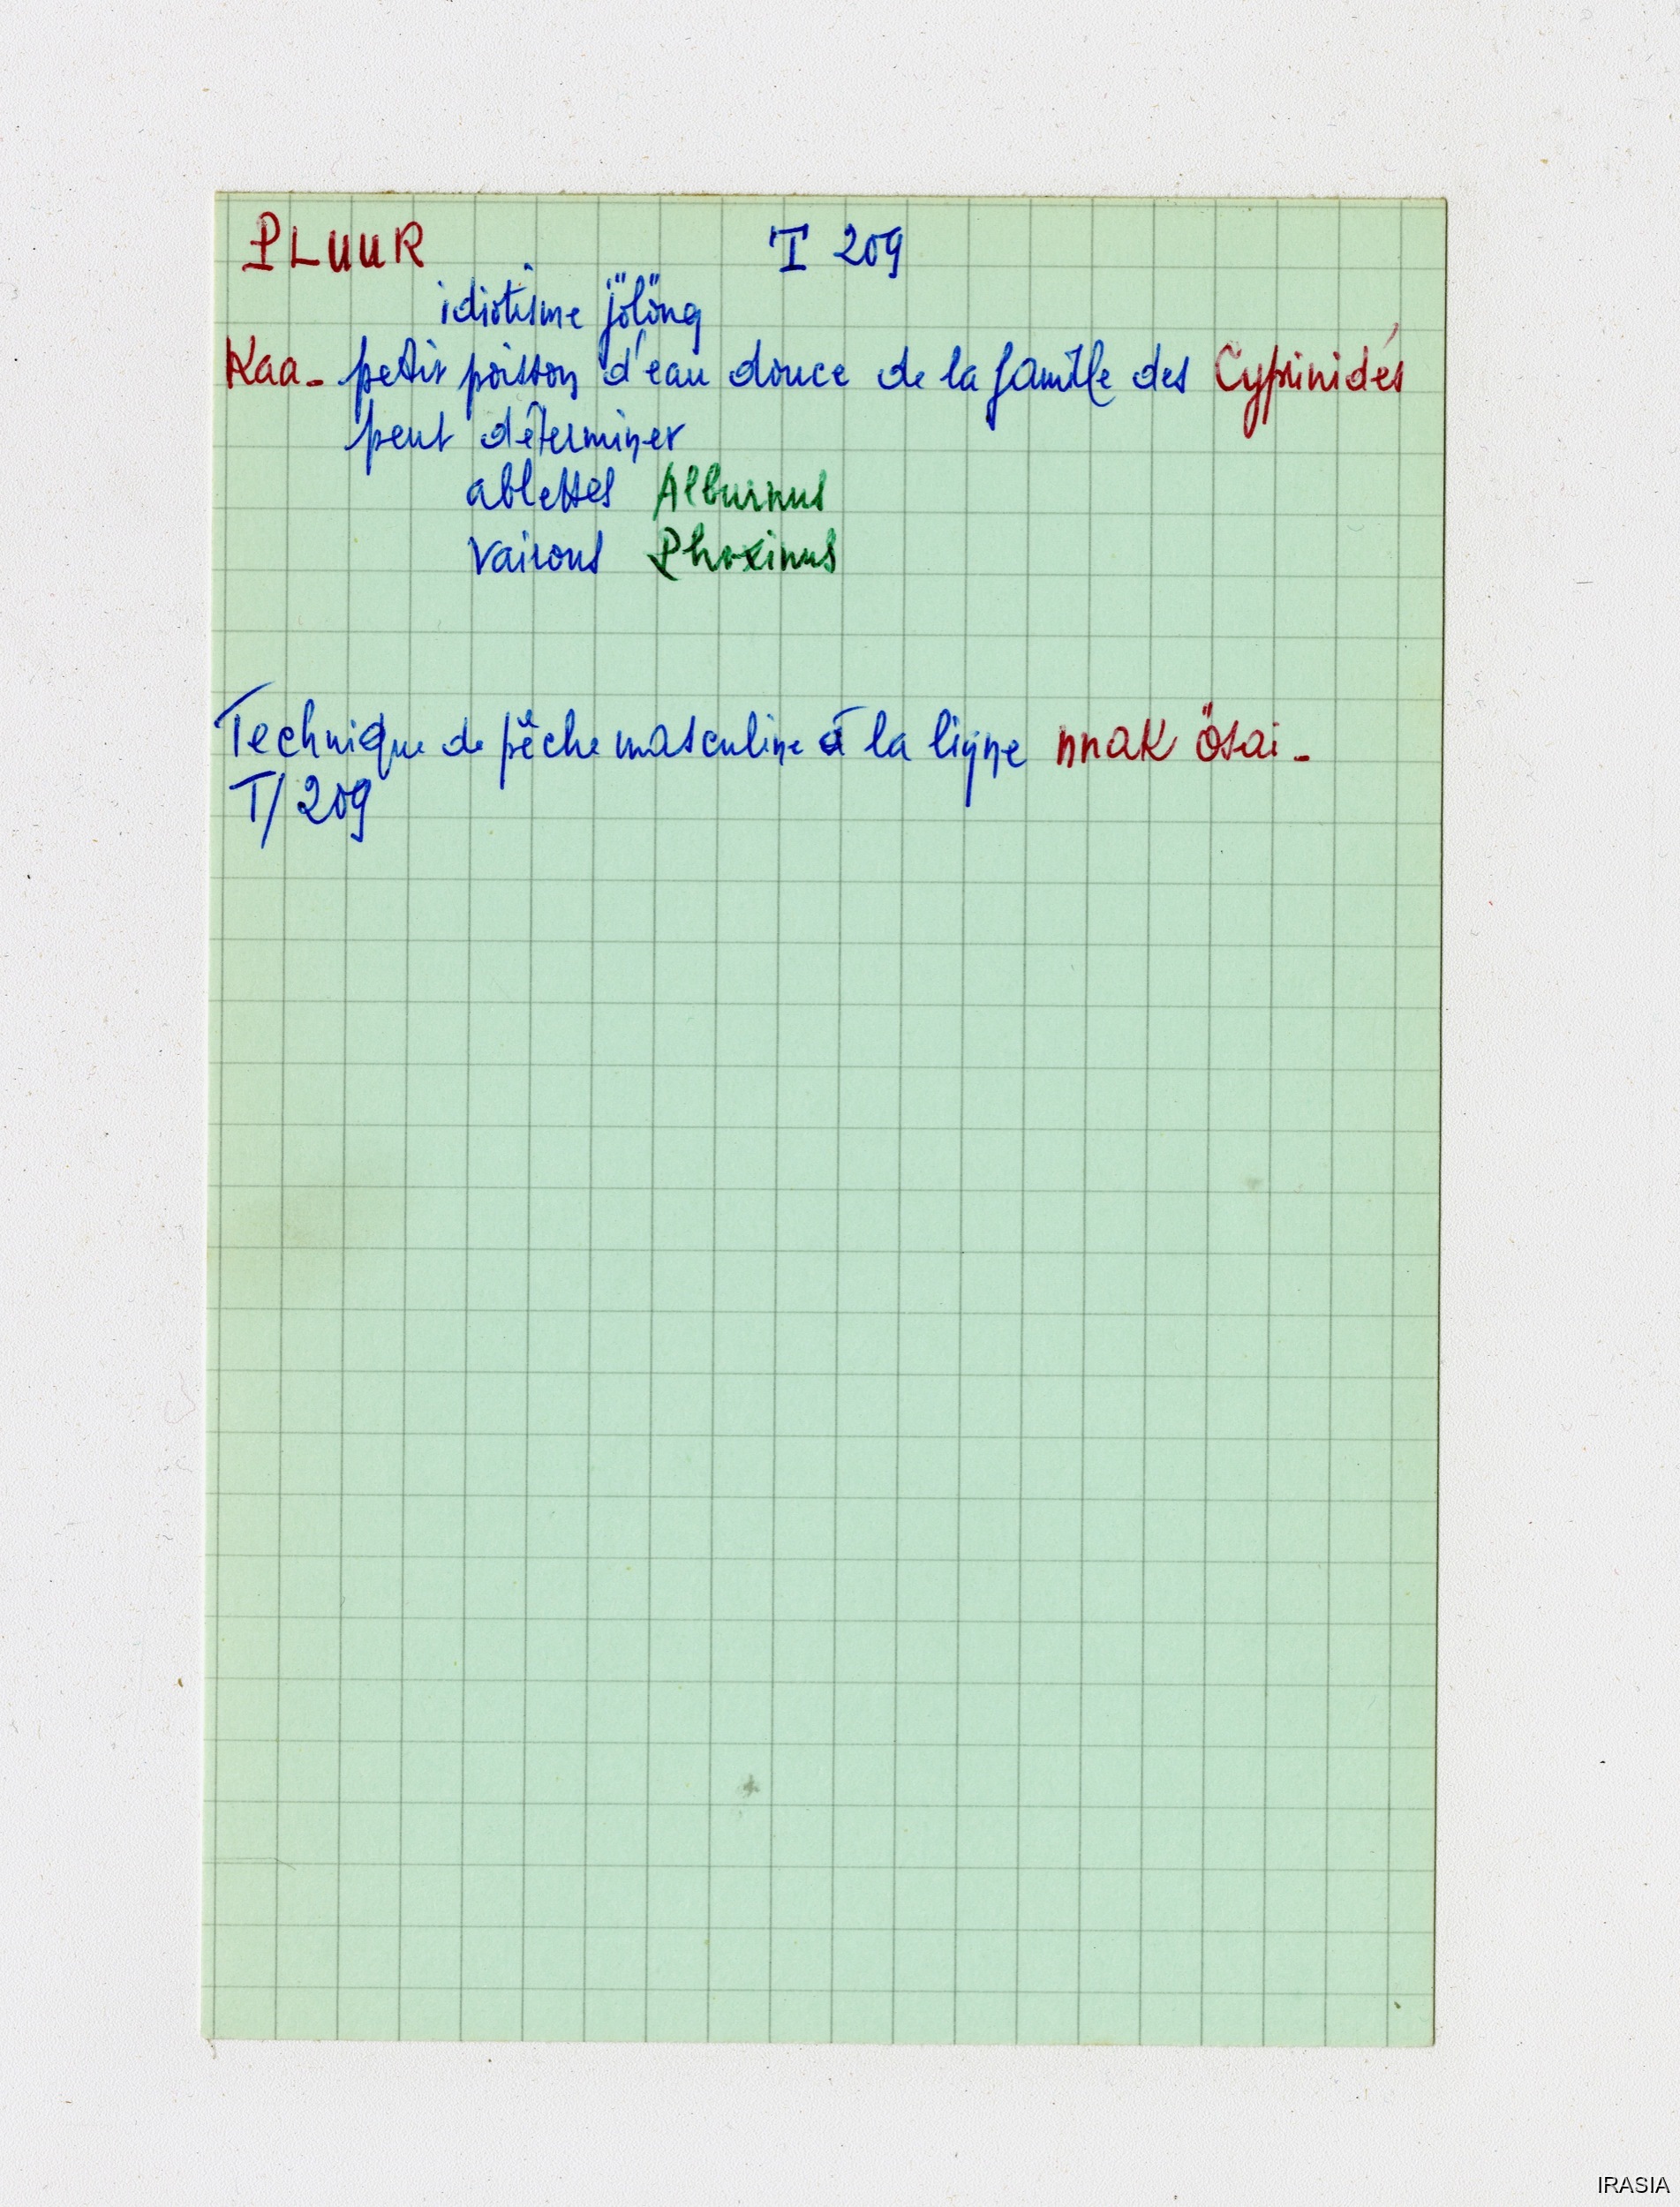 PLUUR T 209
idiotisme jölöng
Kaa- petit poisson d'eau douce de la famille des Cyprinidés
peut déterminer
ablettes Alburnus
Vairons Phoxinus
Technique de pêche masculine à la ligne nnak ösai-
T/209
IRASIA